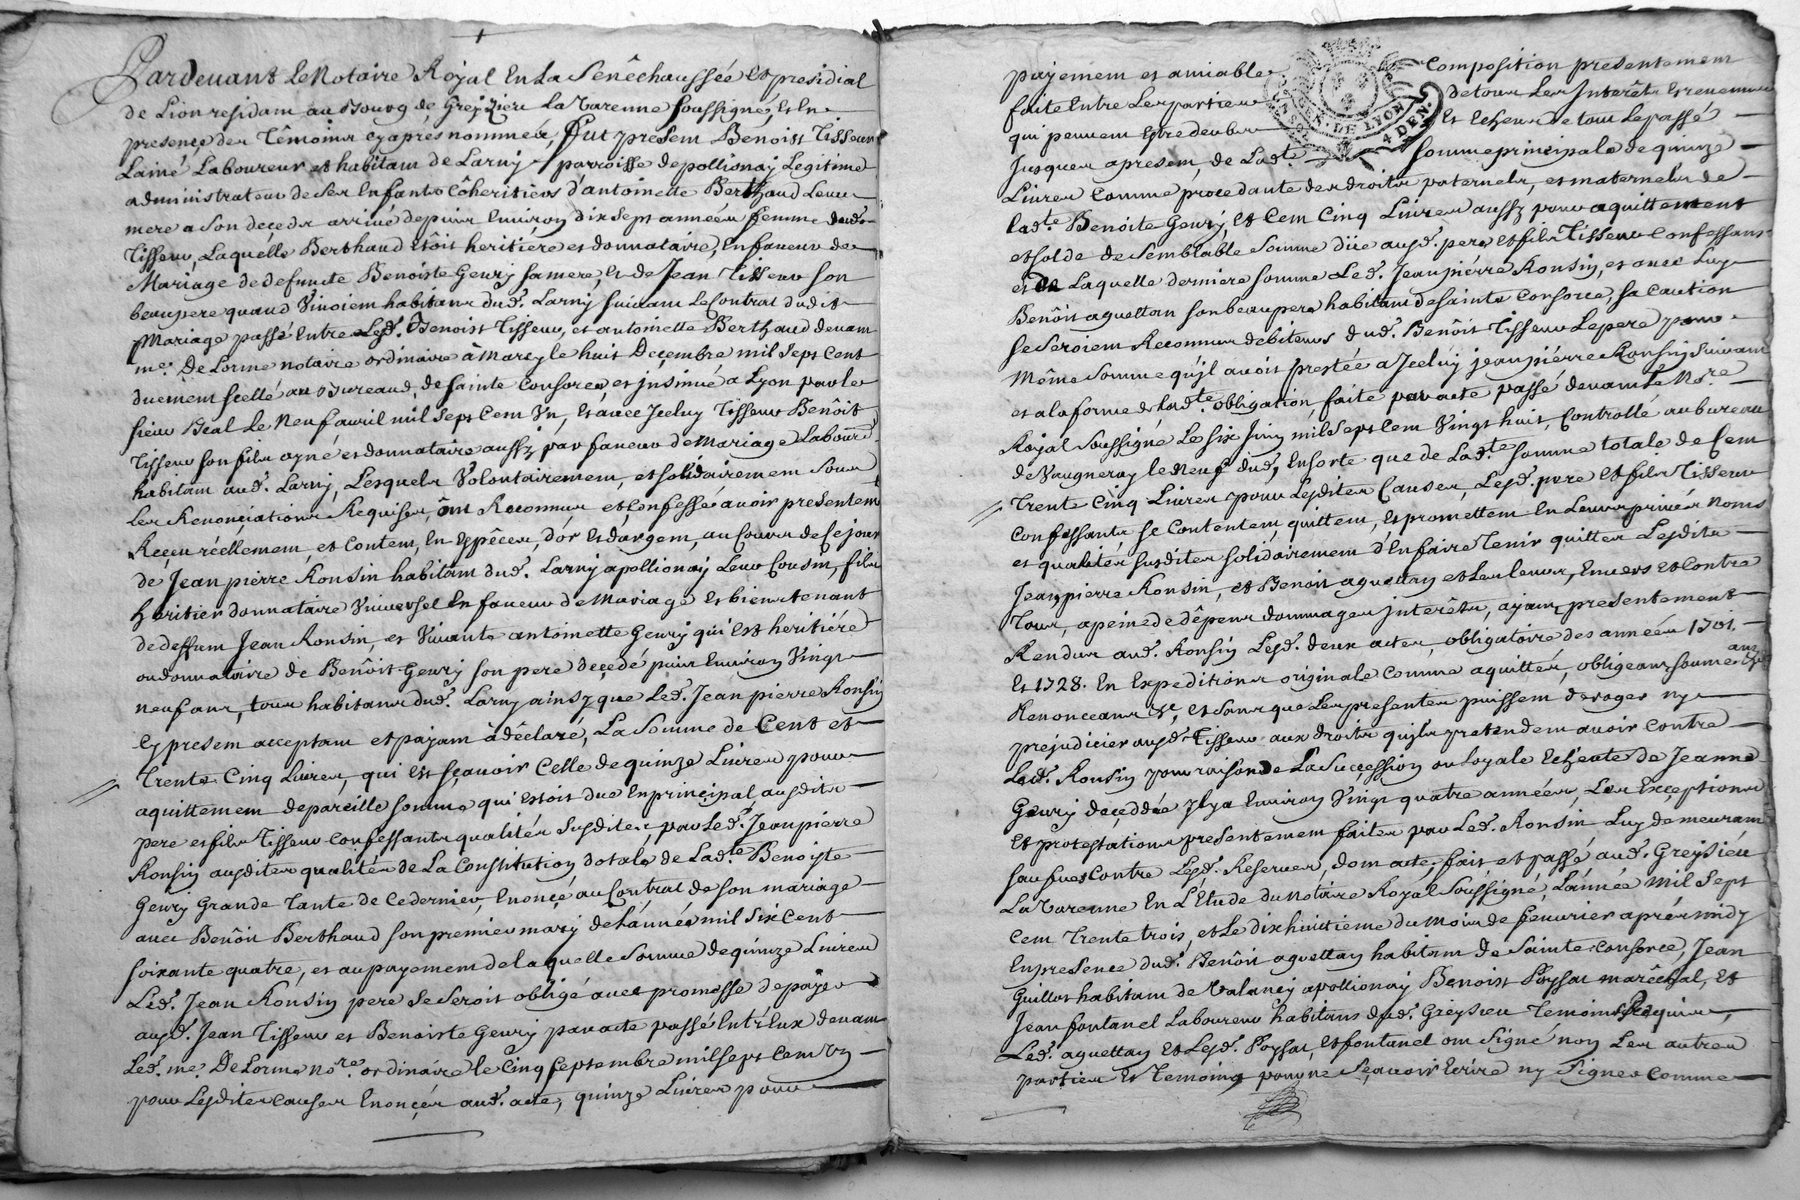 Pardevant Le Notaire Royal En La Senêchaussée Et presidial
de Lion residam au Bourg de Greyzieu La Varenne soussigné, Et En
presence des Têmoins cy aprés nommés, fut present Benoist Tisseur
Lainé Laboureur et habitam de Larny parroisse de pollionay Legitime
administrateur de ses Enfants Côheritiers d'antoinette Berthaud Leur
mere a son deçeds arrivé depuis Environ dix sept années femme dud.
Tisseur, Laquelle Berthaud êtôit heritiére et donnataire, En faveur de
Mariage de defuncte Benoiste Geury sa mere, Et de Jean Tisseur son
beaupere quand Vivoiem habitans dud. Larny suivam Le Contrat dudit
Mariage passé Entre Led. Benoist Tisseur, et antoinette Berthaud devam
me. De Lorme notaire ordinaire à Marcy le huit Deçembre mil sept Cent
duëment scellé au Bureau de sainte Consorce, et jnsinué a Lyon par le
sieur Beal Le Neuf avril mil sept Cem Vn, Et avec Jceluy Tisseur Benôit
Tisseur son fils ayné et donnataire aussy par faveur de Mariage Labour.
habitam aud. Larny, Lesquels Volontairemem, et solidairemem sous
Les Renonçiations Requises, ôm Reconnus et Confessé avoir presentem
Reçeu réellemem, et Contem, En Espêces, d'ôr Et d'argem, au Cours de Ce jour
de Jean pierre Ronsin habitam dud. Larny a pollionay Leur Cousin, fils
heritier donnataire Vniversel En faveur de Mariage Et bien tenant
de deffum Jean Ronsin, et Vivante antoinette Geury qui Est heritiére
ou donnataire de Benôit Geury son pere deçedé puis Environ Vingt
neuf ans, tous habitans dud. Larny ainsy que Led. Jean pierre Ronsin
Cy presem acceptam et payam à dêclaré, La Somme de Cent et
Trente Cinq Livres, qui Est sçavoir Celle de quinze Livres pour
aquittemem de pareille somme qui Estoit due En principal ausdits
pere et fils Tisseur Confessants qualités susdites par Led. Jean pierre
Ronsin ausdites qualités de La Constitution dotale de Lad.te Benoiste
Geury Grande Tante de Ce dernier, Enonçé au Contrat de son mariage
avec Benôit Berthaud son premier mary de Lannée mil six Cent
soixante quatre, et au payement de la quelle Somme de quinze Livres
Led. Jean Ronsin pere se seroit obligé avec promesse de payer
aud. Jean Tisseur et Benoiste Geury par acte passé Entr'Eux devam
Led. me. De Lorme no.re ordinaire le Cinq septembre mil sept Cem Vn
pour Lesdites Causes Enonçés aud. acte, quinze Livres pour
payemem et amiable Composition presentemem
faite Entre Les parties de tous Les Interêts Et revenus
qui peuvem Estre deubs Et Echeus de tout Le passé
Jusques apresem, de Lad.te somme principale de quinze
Livres Comme procedante des droits paternels, et maternels de
Lad.te Benoite Geury, Et Cem Cinq Livres aussy pour aquittement
et solde de semblable Somme düe aud. pere et fils Tisseur Confessans
et de Laquelle derniere somme Led. Jean piérre Ronsin, et avec Luy
Benôit aguettan son beaupere habitam de sainte Consorce, sa Caution
se seroiem Reconnus debiteurs dud. Benôit Tisseur Le pere pour
Même Somme qu'jl avoit prestée a Jceluy jean piérre Ronsin suivam
et a la forme de Lad.te obligation, faite par acte passé devam Le No.re
Royal soussigné Le six Juin mil sept Cem Vingt huit, Controllé au bureau
de Vaugneray le neuf dud., Ensorte que de Lad.te somme totale de Cem
Trente Cinq Livres pour Lesdites Causes, Lesd. pere Et fils Tisseur
Confessants se Contentem, quittem, Et promettem En Leurs privés noms
et qualités susdites solidairemem d'En faire Tenir quittes Lesdits
Jean pierre Ronsin, et Benoit aguettan et Les Leurs, Envers et Contre
Tous, a peine de dêpens dommages jnterêts, ayam presentement
Rendus aud. Ronsin Lesd. deux actes, obligatoire des années 1701.
Et 1728. En Expeditions originale Comme aquittés, obligeans, soumettans
Renonceans &c, et sans que Les presentes puissem deroger ny
prejudicier ausd. Tisseur aux droits qu'jls pretendem avoir Contre
Led. Ronsin pour raison de La Sucçession ou Loyale Echeute de Jeanne
Geury deçedée jl y a Environ Vingt quatre années, Les Exçeptions
Et protestations presentemem faites par Led. Ronsin Luy demeuram
sauves Contre Lesd. Reserves, dom acte, fait et passé aud. Greysieu
La Varenne En L'Etude du Notaire Royal Soussigné, L'année Mil Sept
Cem Trente trois, et Le dix huittieme du Mois de fevrier aprés midy
En presence dud. Benôit aguettan habitam de Sainte Consorce, Jean
Guillot habitam de Valancy a pollionay Benoist Poysat marêchal, Et
Jean fontanel Laboureur habitans dud. Greysieu Temoins Requis,
Led. aguettan Et Lesd. Poysat, Et fontanel om Signé non Les autres
parties Et Temoins pour ne Sçavoir Ecrire ny Signer Comme
S. DE LYON
4 DEN.